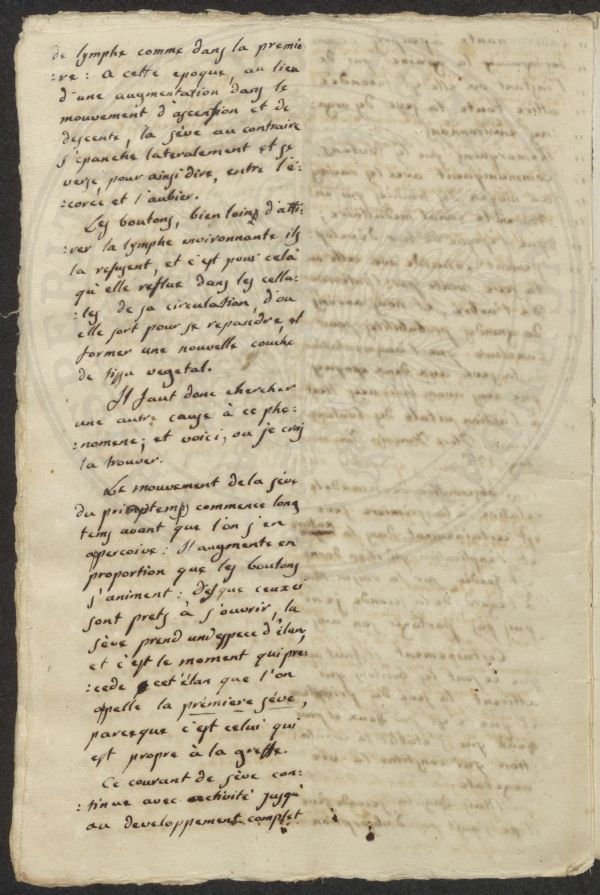 de lymphe comme dans la premie
:re : a cette epoque, au lieu
d'une augmentation dans le
mouvement d'ascension et de
descente, la séve au contraire
s'epanche lateralement et se
verse, pour ainsi dire, entre l'é-
:corce et l'aubier.
Les boutons, bien loin d'atti-
:rer la lymphe environnante ils
la refusent, et c'est pour celà
qu'elle reflue dans les cellu-
:les de sa circulation d'ou
elle sort pour se repandre, et
former une nouvelle couche
de tissu vegetal.
Il faut donc chercher
une autre cause à ce phe-
:nomene; et voici, ou je crois
la trouver.
Le mouvement de la séve
du printemps commence long
tems avant que l'on s'en
apperçoive : Il augmente en
proportion que les boutons
s'animent : Des que ceux ci
sont prets à s'ouvrir, la
sève prend une espece d'élan,
et c'est le moment qui pre-
:cede cet élan que l'on
appelle la prémiere séve,
parceque c'est celui qui
est propre à la greffe.
Ce courant de sève con-
:tinue avec activité jusqu'
au developpement complet